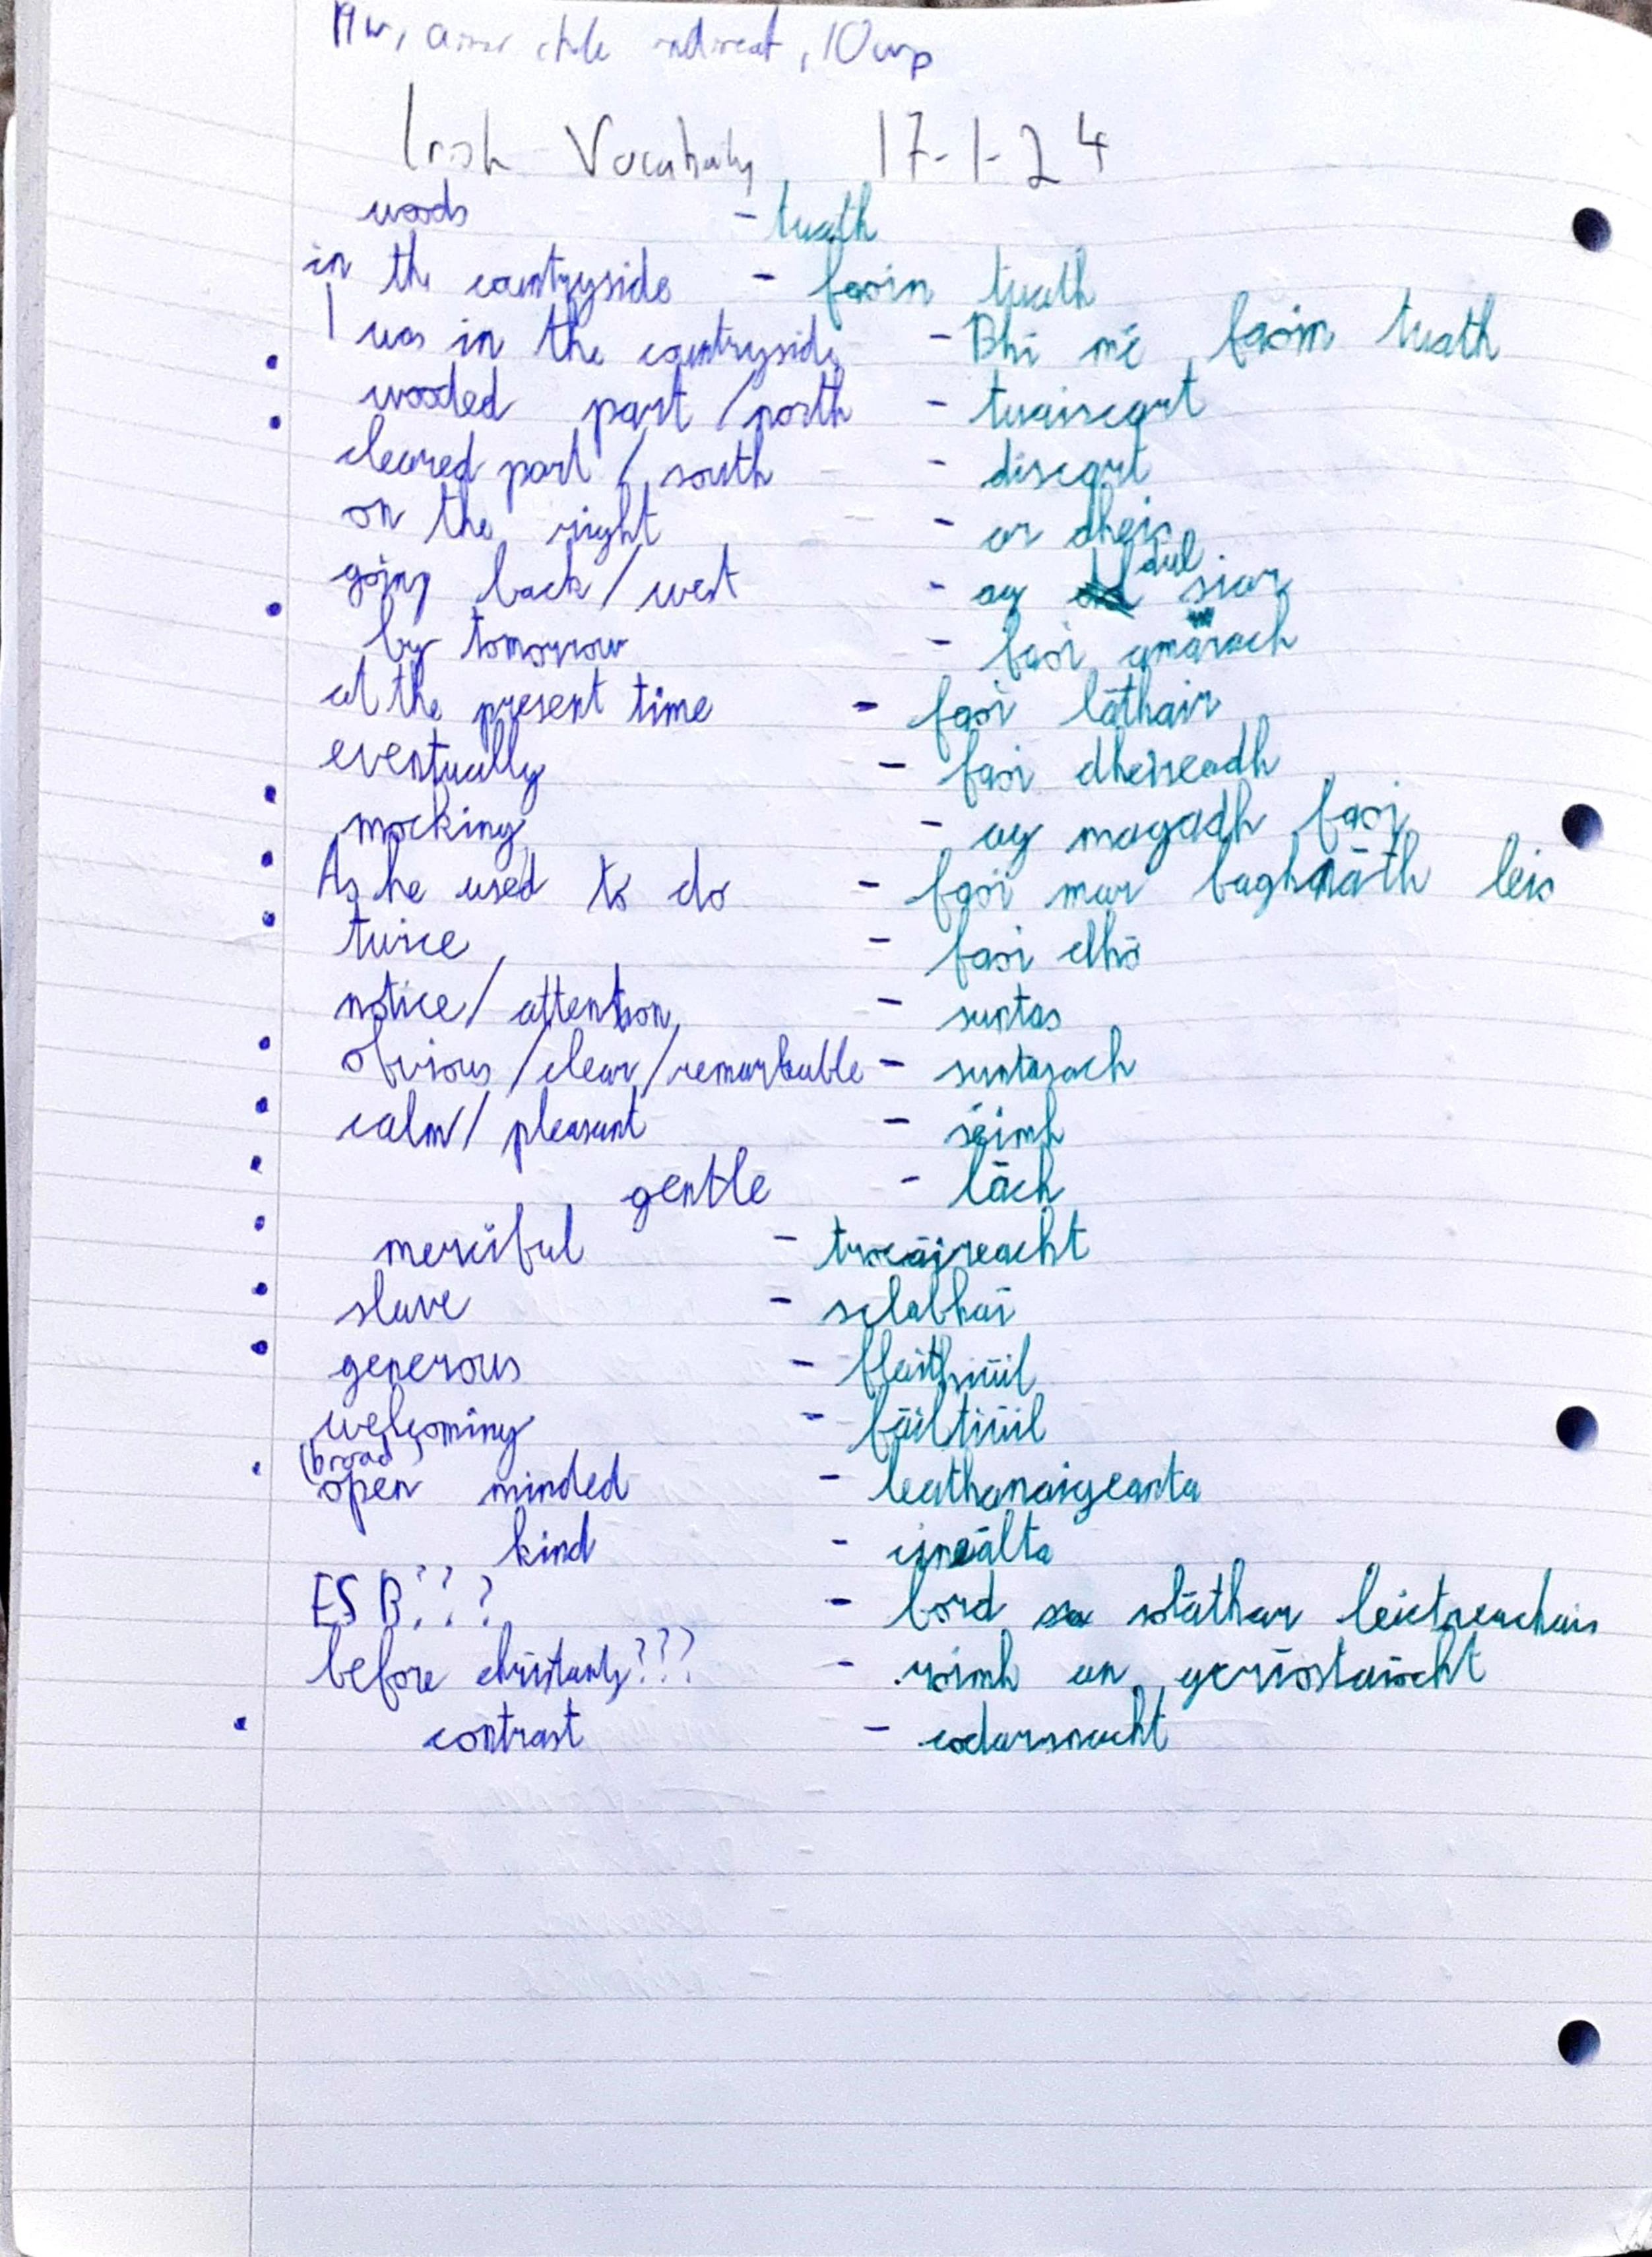 Irish Vocabulary 17-1-24
woods - tuath
in the countryside - faoin tuath
I was in the countryside - Bhí mé faoin tuath
wooded part / north - tuaiscart
cleared part / south - discart
on the right - ar dheis
going back / west - ag dul siar
by tomorrow - faoi amárach
at the present time - faoi láthair
eventually - faoi dheireadh
mocking - ag magadh faoi
As he used to do - faoi mar baghnáth leis
twice - faoi dhó
notice / attention - suntas
obvious / clear / remarkable - suntasach
calm / pleasant - séimh
gentle - lách
merciful - trócaireacht
slave - sclabhaí
generous - flaithiúil
welcoming - fáiltiúil
(broad)
open minded - leathanaigeanta
kind - cineálta
ESB??? - bord sa soláthar leictreachais
before christianty??? - roimh an gcríostaíocht
contrast - codarsnacht